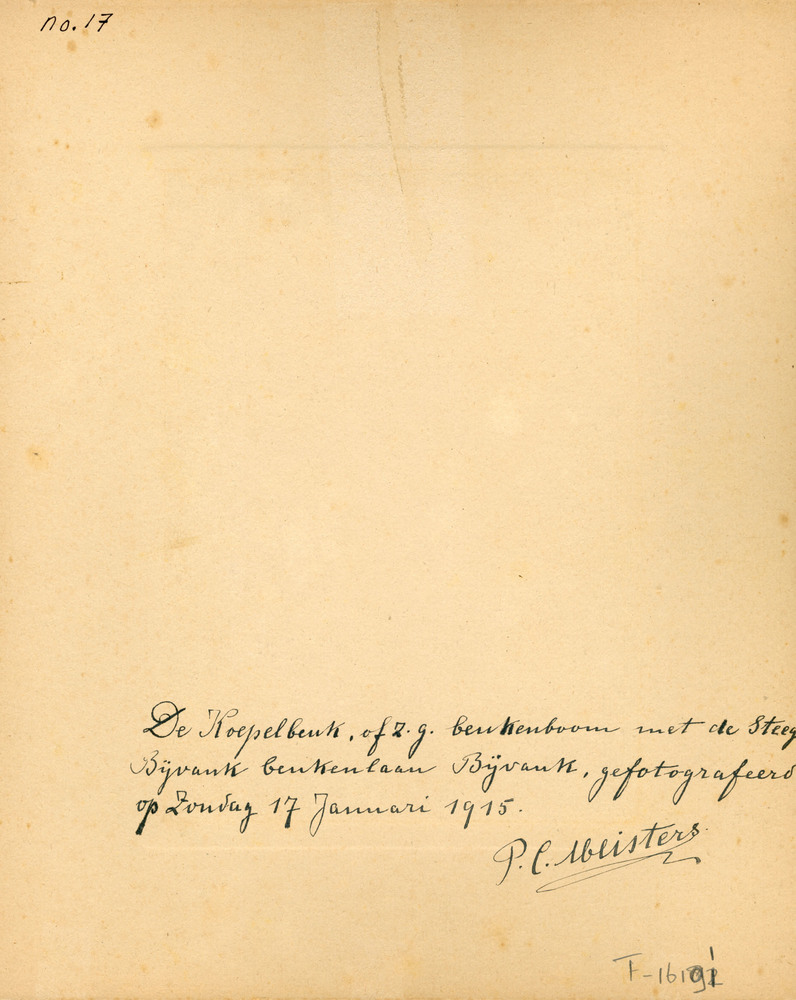 no. 17
De Koepelbeuk, of z.g. beukenboom met de Steeg
Bÿvank beukenlaan Bÿvank, gefotografeerd
op Zondag 17 Januari 1915.
P. C. Meisters.